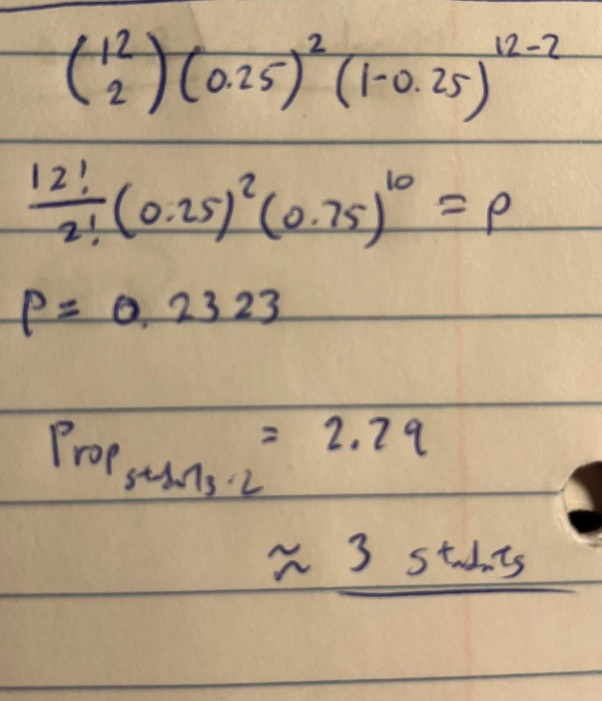 (12 2)(0.25)^2 (1-0.25)^12-2
12!/2! (0.25)^2 (0.75)^10 = p
p = 0.2323
Prop = 2.79
≈ 3 students